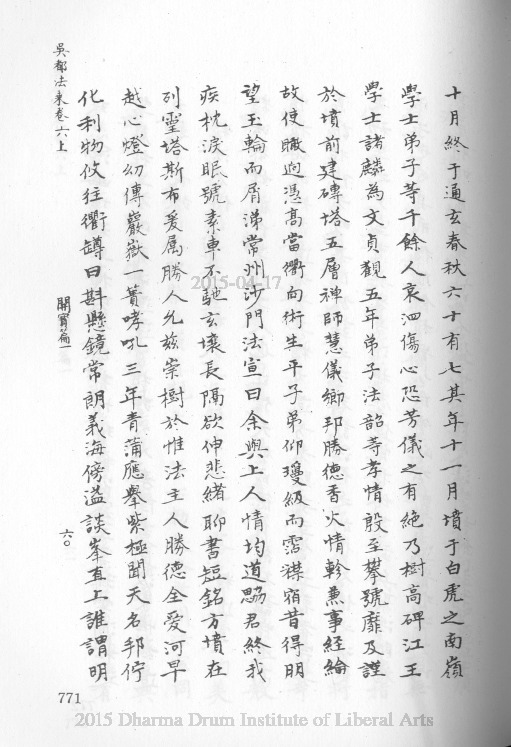 十月終于通玄春秋六十有七其年十一月墳于白虎之南嶺
學士弟子等千餘人哀泗傷心恐芳儀之有絶乃樹高碑江王
學士諸麟為文貞觀五年弟子法韶等孝情殷至攀號靡及謹
於墳前建磚塔五層禪師慧儀鄉邦勝德香火情軫兼事經綸
故使職迥憑高當衢向術生平子弟仰瓊級而霑襟宿昔得朋
望玉輪而屑涕常州沙門法宣曰余與上人情均道勰君終我
疾枕淚眠號素車不馳玄壤長隔欲伸悲緒聊書短銘方墳在
列靈塔斯布爰屬勝人允茲崇樹於惟法主人勝德全愛河早
越心燈幼傳巖嶽一簣哮吼三年青蒲應舉紫極聞天名邦佇
化利物攸往衢罇日斟懸鏡常朗義海傍溢談峯直上誰謂明
吳都法乘卷六上
開實篇
六〇
771
2015-04-17
2015 Dharma Drum Institute of Liberal Arts